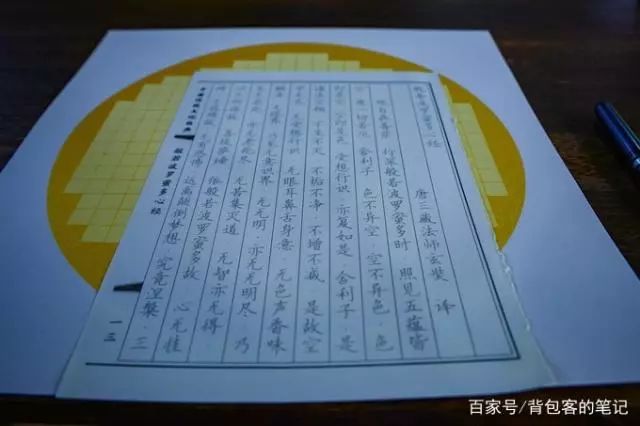 般若波罗蜜多心经
唐三藏法师玄奘 译
观自在菩萨·行深般若波罗蜜多时·照见五蕴皆
空·度一切苦厄·舍利子·色不异空·空不异色·色
即是空·空即是色·受想行识·亦复如是·舍利子·是
诸法空相·不生不灭·不垢不净·不增不减·是故空
中无色·无受想行识·无眼耳鼻舌身意·无色声香味
触法·无眼界·乃至无意识界·无无明·亦无无明尽·乃
至无老死·亦无老死尽·无苦集灭道·无智亦无得
以无所得故·菩提萨埵·依般若波罗蜜多故·心无挂
碍·无挂碍故·无有恐怖·远离颠倒梦想·究竟涅槃·三
般若波罗蜜多心经
一三
百家号/背包客的笔记